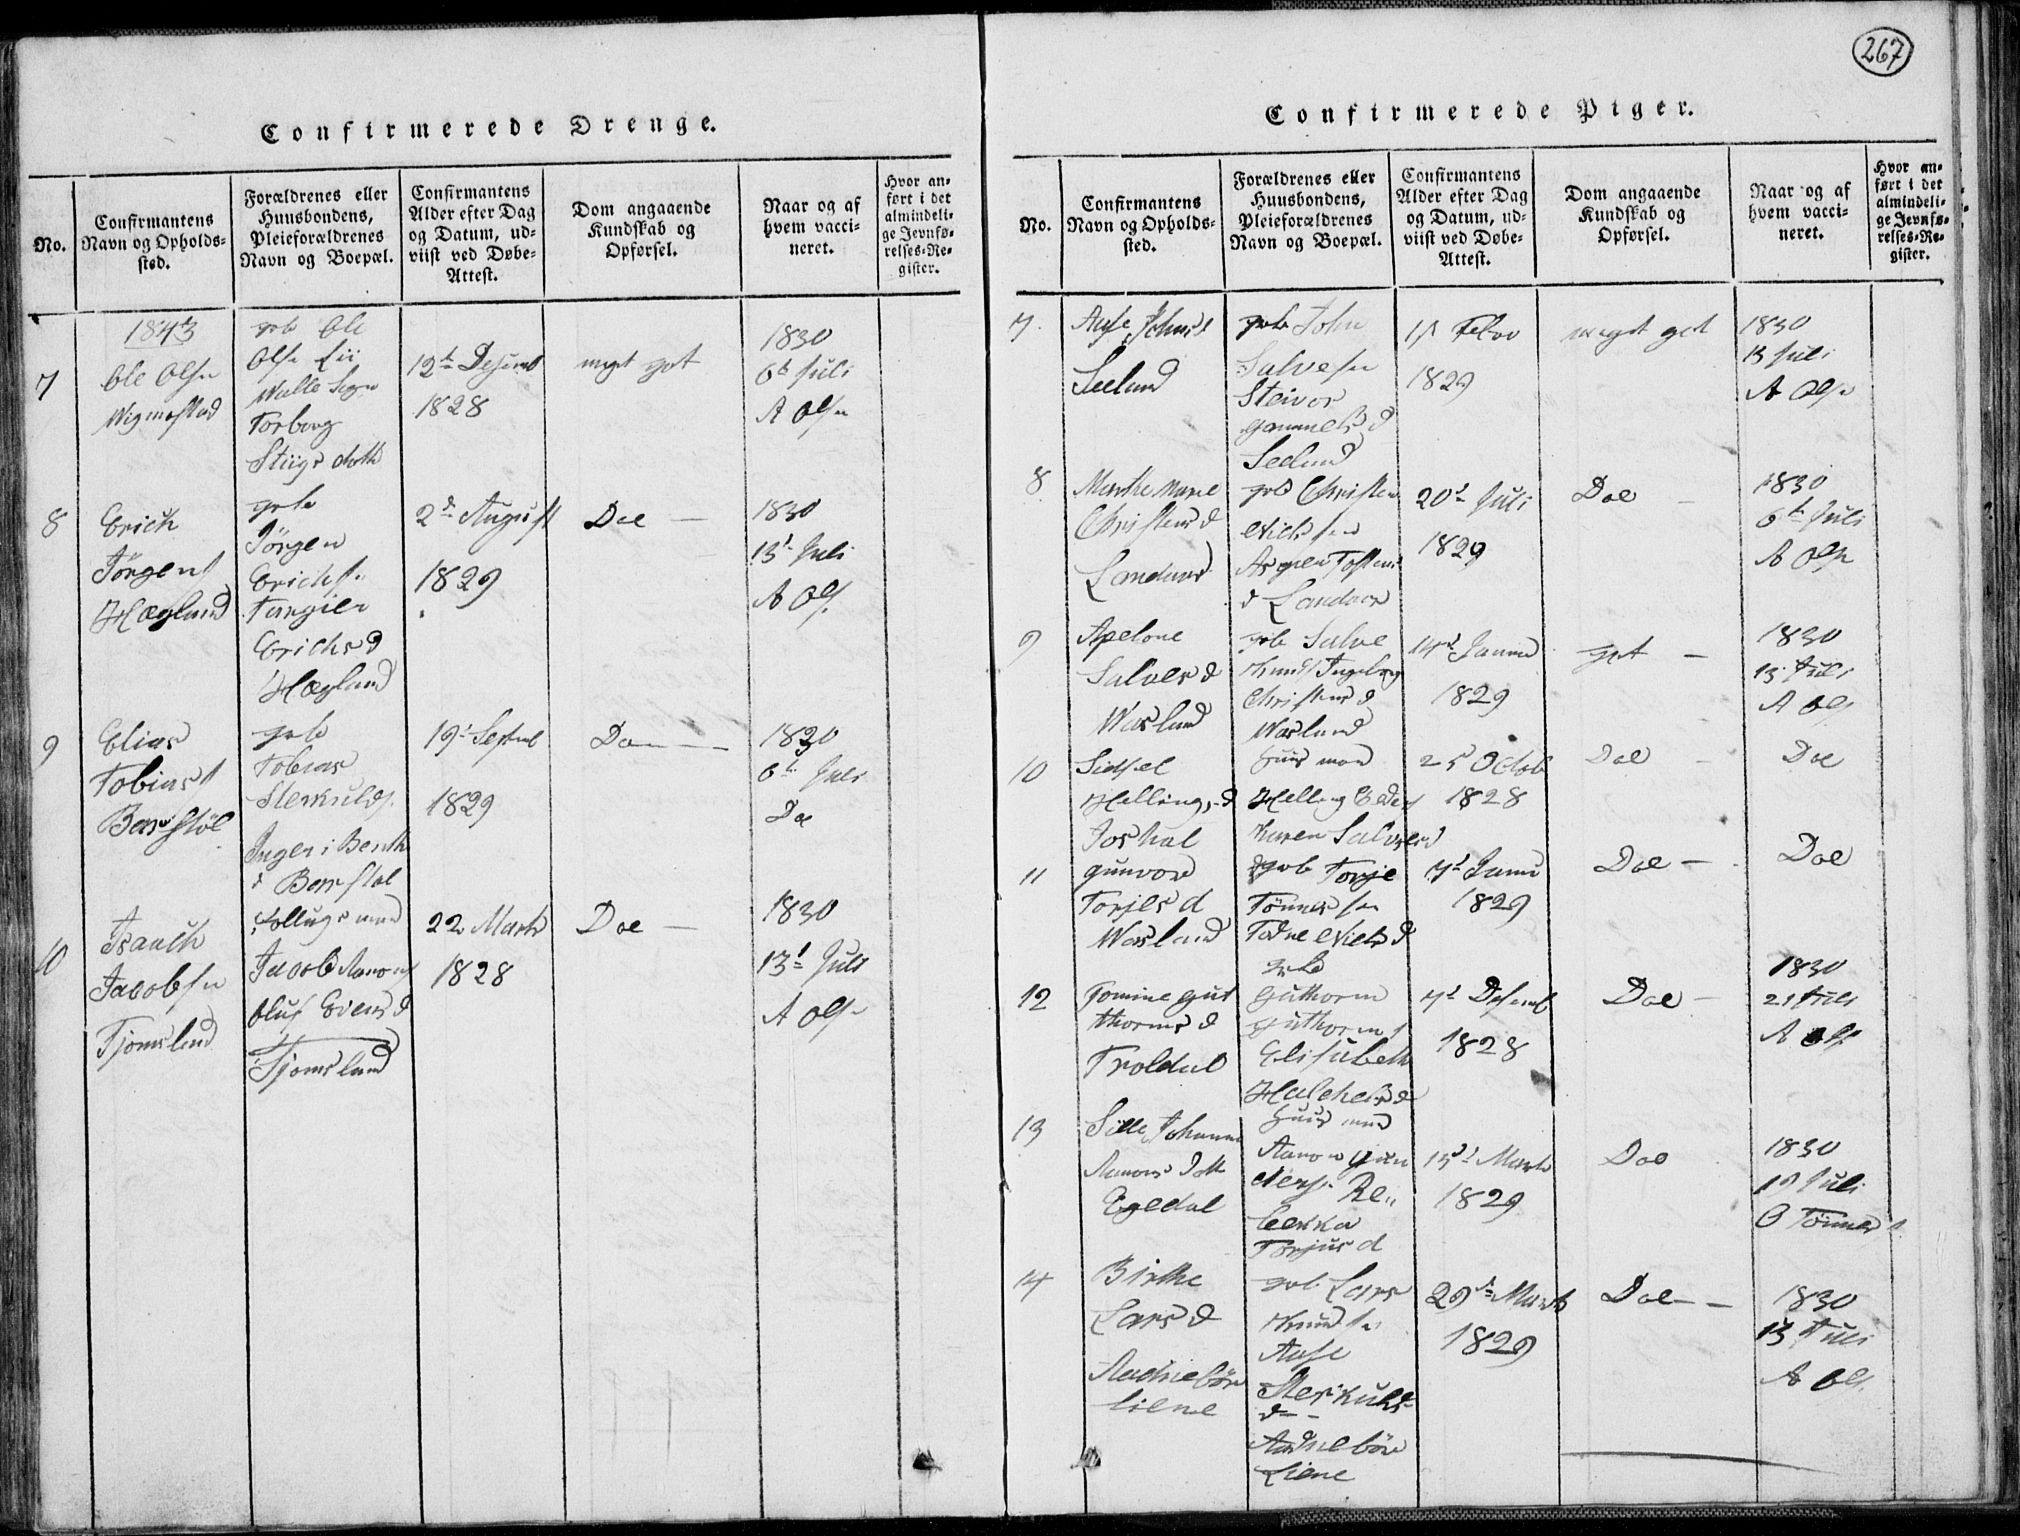 267
Confirmerede Drenge.
No.
Confirmantens
Navn og Opholds-
sted.
Forældrenes eller
Huusbondens,
Pleieforældrenes
Navn og Boepæl.
Confirmantens
Alder efter Dag
og Datum, ud-
viist ved Døbe-
Attest.
Dom angaaende
Kundskab og
Opførsel.
Naar og af
hvem vacci-
neret.
Hvor an-
ført i det
almindeli-
ge Jevnfø-
relses-Re-
gister.
1843
7
Ole Olsn
Wigmostad
grb Ole
Olsn
Walle Sogn
Torborg
Stiigs doth
12t Desemb
1828
meget got
1830
6t Juli
A Olsn
8
Erich
Jörgens
Hægland
grb
Jörgen
Erichsn
Tangier
Erichsd
Hægland
2d August
1829
Doe —
1830
13t Juli
A Ols.
9
Elias
Tobiass
Benestöl
grb
Tobias
Sterkulds.
Inger Benth
d Benstøl
19t Septmb
1829
Do —
1830
6t Juli
Do
10
Isaach
Jacobsn
Tjomsland
Jacob Aanons
Oluf Evensd
Tjomsland
22 Marts
1828
Doe —
1830
13t Juli
A Olsn
Confirmerede Piger.
No.
Confirmantens
Navn og Opholds-
sted.
Forældrenes eller
Huusbondens,
Pleieforældrenes
Navn og Boepæl.
Confirmantens
Alder efter Dag
og Datum, ud-
viist ved Døbe-
Attest.
Dom angaaende
Kundskab og
Opførsel.
Naar og af
hvem vacci-
neret.
Hvor an-
ført i det
almindeli-
ge Jevnfø-
relses-Re-
gister.
7.
Aase Johns d
Seeland
grb John
Salvesen
Steivor
Gammelsd
Seeland
Febr
1829
meget got
1830
13 Juli
A Olsn
8
Marthe Marie
Christensd
Landaas
grb Christen
Nielsen
Asgier Tostens
d Landaas
20t Juli
1829
Doe —
1830
6t Juli
A Olsn
9
Apelone
Salvesd
Wasland
grb Salve
Knuds Ingeborg
Christensd
Wasland
14d Januar
1829
got —
1830
13 Juli
A Ols
10
Sidsel
Hellings d
Joskal
Huusmand
Helling Peders
Karen Salvesd
25 Octob
1828
Doe —
Doe
11
Gunvor
Torjes d
Wasland
grb Torje
Tønnesen
Todne Nielsd
7d Janu
1829
Doe —
Doe
12
Tomine Gut
thormsd
Troldal
grb
Guthorm
Guthorms
Elisabeth
Halchelsd
7d Desemb
1828
Doe —
1830
21 Juli
A Ols
13
Sille Johanne
Aanons Dtt
Egedal
Huusmand
Aanon Gun
ders. Re„
becka
Torjus d
15d Marts
1829
Doe
1830
19 Juli
O Tönness
14
Birthe
Larsd
Aadnebör
Liene
grb Lars
Knudsn
Aase
Sterkulds
d —
Aadnebör
Liene
29d Marts
1829
Doe —
1830
13 Juli
A Ols.